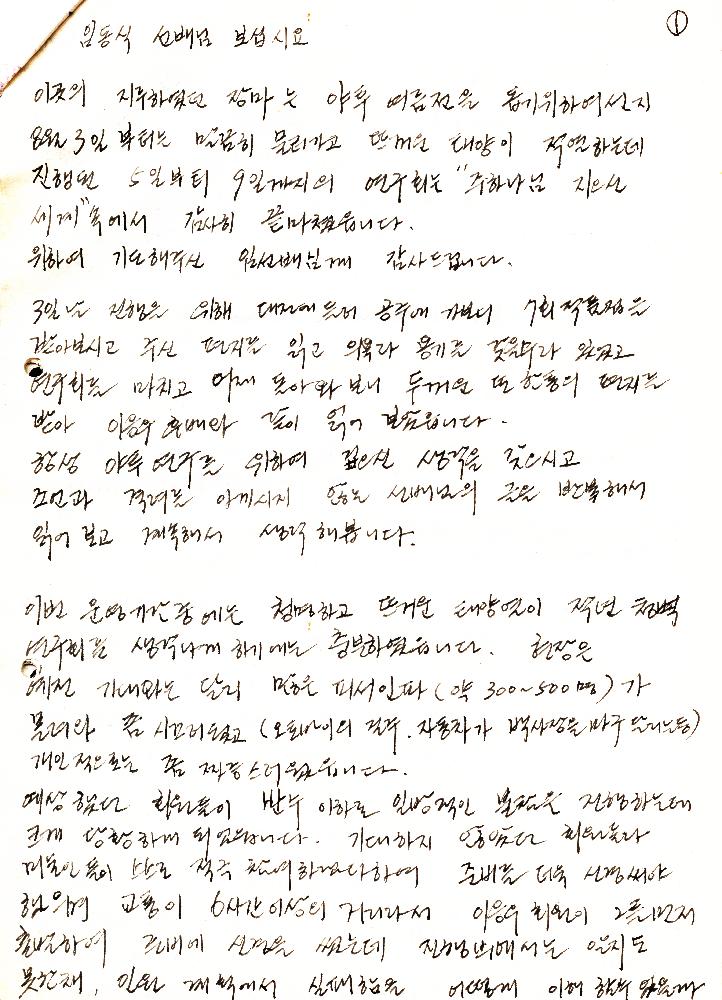 ①
임동식 선배님 보십시요
이곳의 지루하였던 장마는 야투 여름전을 돕기위하여선지
8월 3일부터는 말끔히 물러가고 뜨거운 태양이 작열하는데
진행된 5일부터 9일까지의 연구회는 "주하나님 지으신
세계"속에서 감사히 끝마쳤읍니다.
위하여 기도해주신 임선배님께 감사드립니다.
3일날 진행을 위해 대전에 들러 공주에 가보니 7회 작품전을
받아보시고 주신 편지를 읽고 의욕과 용기를 갖을수가 있었고
연구회를 마치고 어제 돌아와 보니 두꺼운 또 한통의 편지를
받아 이응우 후배와 같이 읽어 보았읍니다.
항상 야투연구를 위하여 깊으신 생각을 갖으시고
조언과 격려를 아끼시지 않는 선배님의 글을 반복해서
읽어보고 계속해서 생각해봅니다.
이번 운영기간중에는 청명하고 뜨거운 태양열이 작년 청벽
연구회를 생각나게 하기에는 충분하였읍니다. 현장은
예전 기대와는 달리 많은 피서인파(약 300~500명)가
몰려와 좀 시끄러웠고 (오토바이의 질주. 자동차가 백사장을 마구 달리는등)
개인적으로는 좀 짜증스러웠읍니다.
예상했던 회원들이 반수 이하로 일방적인 불참을 진행하는데
크게 당황하게 되었읍니다. 기대하지 않았던 회원들과
적극 참여하였다하여 준비를 더욱 신경써야
했으며 교통이 6시간이상의 거리라서 이응우 회원이 먼저
출발하여 준비에 신경을 썼는데 진행부에서는 알지도
못한채, 인원 계획에서 실패함을 어떻게 이해 할수 있을까